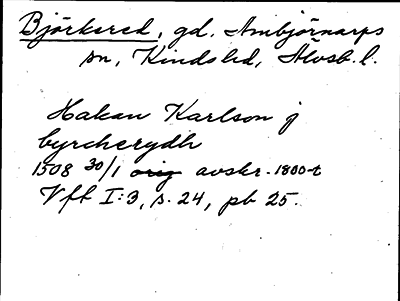 Björksered, gd, Ambjörnarps
sn, Kinds hd, Älvsb. l.
Hakan Karlson j
byrcherydh
1508 30/1 orig avskr. 1800-t
Vft I:3, s. 24, pb 25.